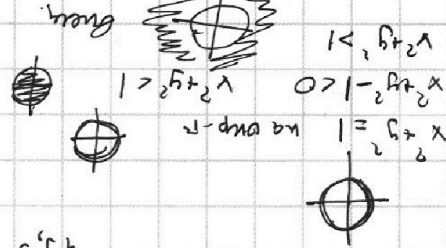 x² + y² = 1 на окр-и
x² + y² - 1 < 0 x² + y² < 1
x² + y² > 1